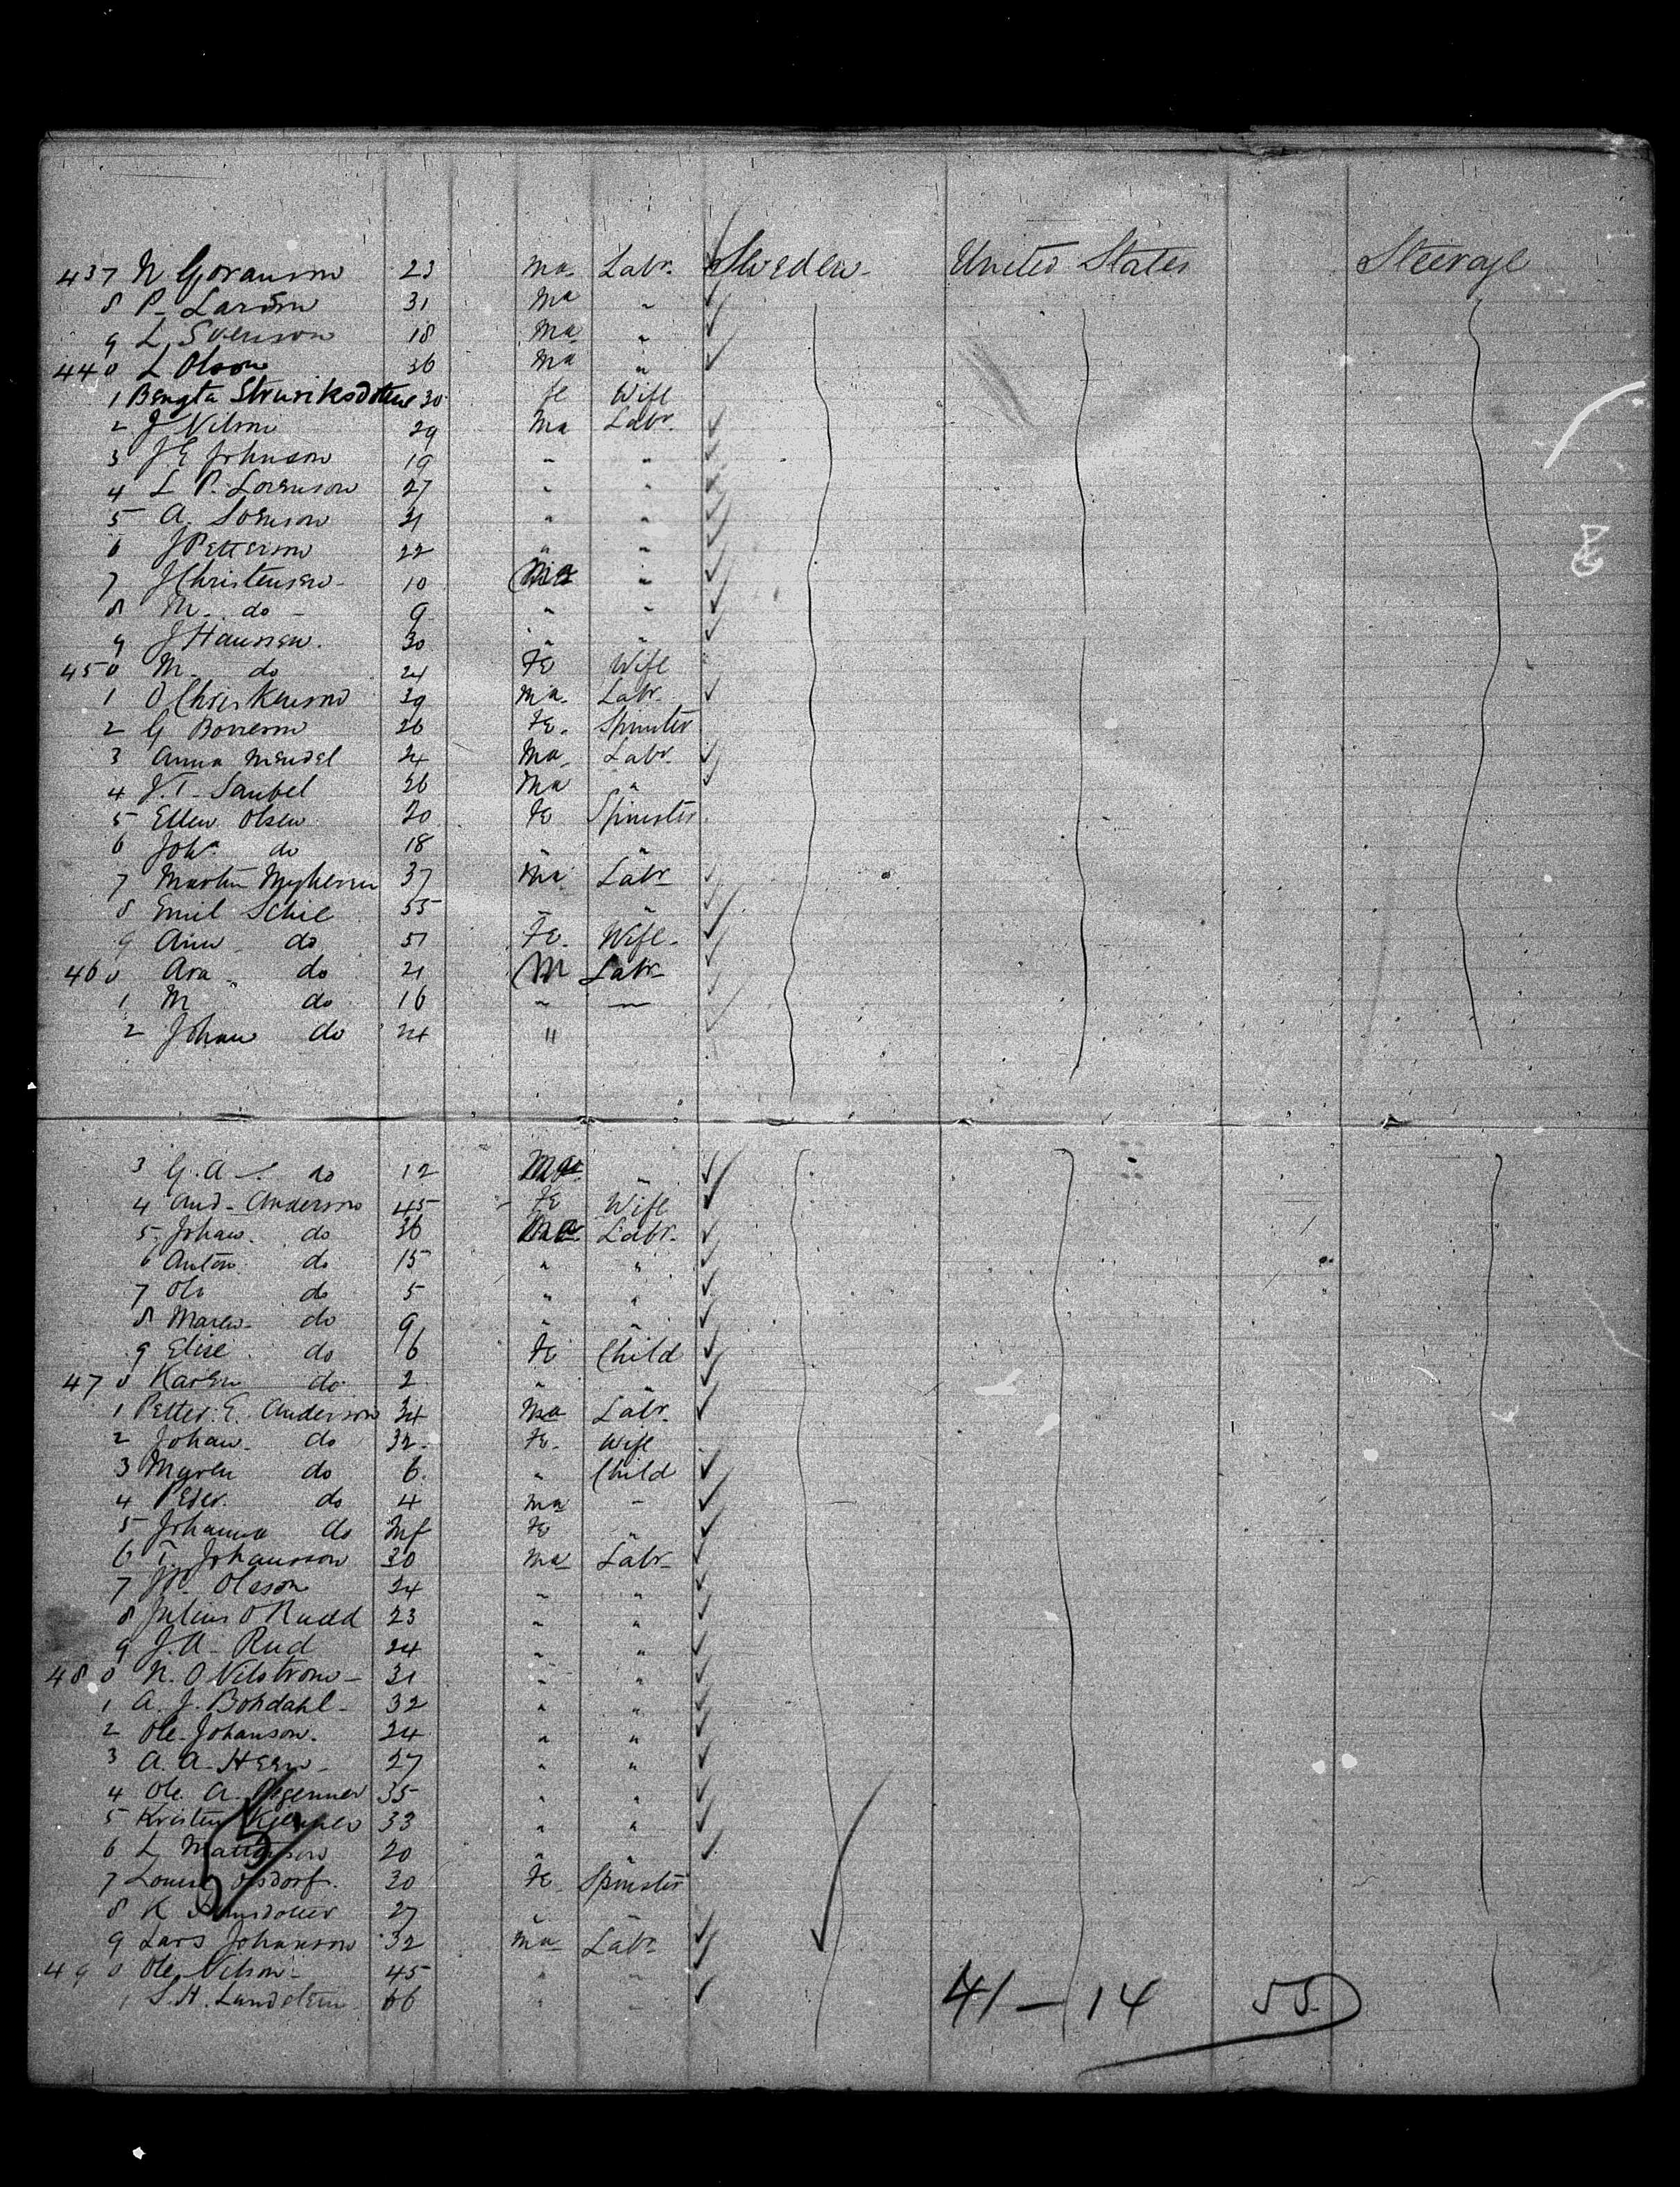 437 N Goranson 23 Ma- Labr. Sweden- United States Steerage
8 P- Larson 31 Ma "
9 L Svenson 18 Ma "
440 L Olson 36 Ma "
1 Bengta 30 fe Wife
2 J Nilson 29 Ma Labr.
3 J.E Johnson 19 " "
4 L P. Lorenson 27 " "
5 A. Sorenson 21 " "
6 J Petterson 22 " "
7 J Christensen- 10 Ma "
8 M- do - 9 " "
9 J Hanssen. 30 " "
450 M- do 24 Fe Wife
1 O Christenson 39 Ma- Labr.
2 G 26 Fe. Spinster
3 Anna Mendel 24 Ma- Labr.
4 J.T- Saubel 26 Ma "
5 Ellen Olsen 20 Fe Spinster
6 Joha do 18 " "
7 Martin 37 Ma Labr
8 Emil Schie 55 " "
9 Ann- do 51 Fe- Wife-
460 Ara- do 21 M Labr-
1 M do 16 " "
2 Johan do 24 "
3 G.A- do 12 Ma "
4 And- Anderson 45 Fe Wife
5 Johan- do 36 Ma Labr-
6 Anton do 15 " "
7 Ole do 5 " "
8 Maren- do 9 " "
9 Elise do 6 Fe Child
470 Karen do 2 " "
1 Petter. E. Anderson 34 Ma Labr-
2 Johan- do 32- Fe- Wife
3 Maren do 6 " Child
4 Peder. do 4 Ma "
5 Johanna do Inf Fe "
6 T. Johansson 30 Ma Labr-
7 Olsson 24 " "
8 Julius O Rudd 23 " "
9 J.A- Rud 24 " "
480 N. O Nilstrom- 31 " "
1 A. J. Bohdahl- 32 " "
2 Ole Johanson. 24 " "
3 A. A- 27 " "
4 Ole. A. 35 " "
5 Kristen 33 " "
6 L Mattson 20 " "
7 Louise 30 Fe- Spinster
8 K 27 " "
9 Lars Johanson 32 Ma- Labr
490 Ole Nilson- 45 " "
1 S.H. 66 " "
41 - 14 55